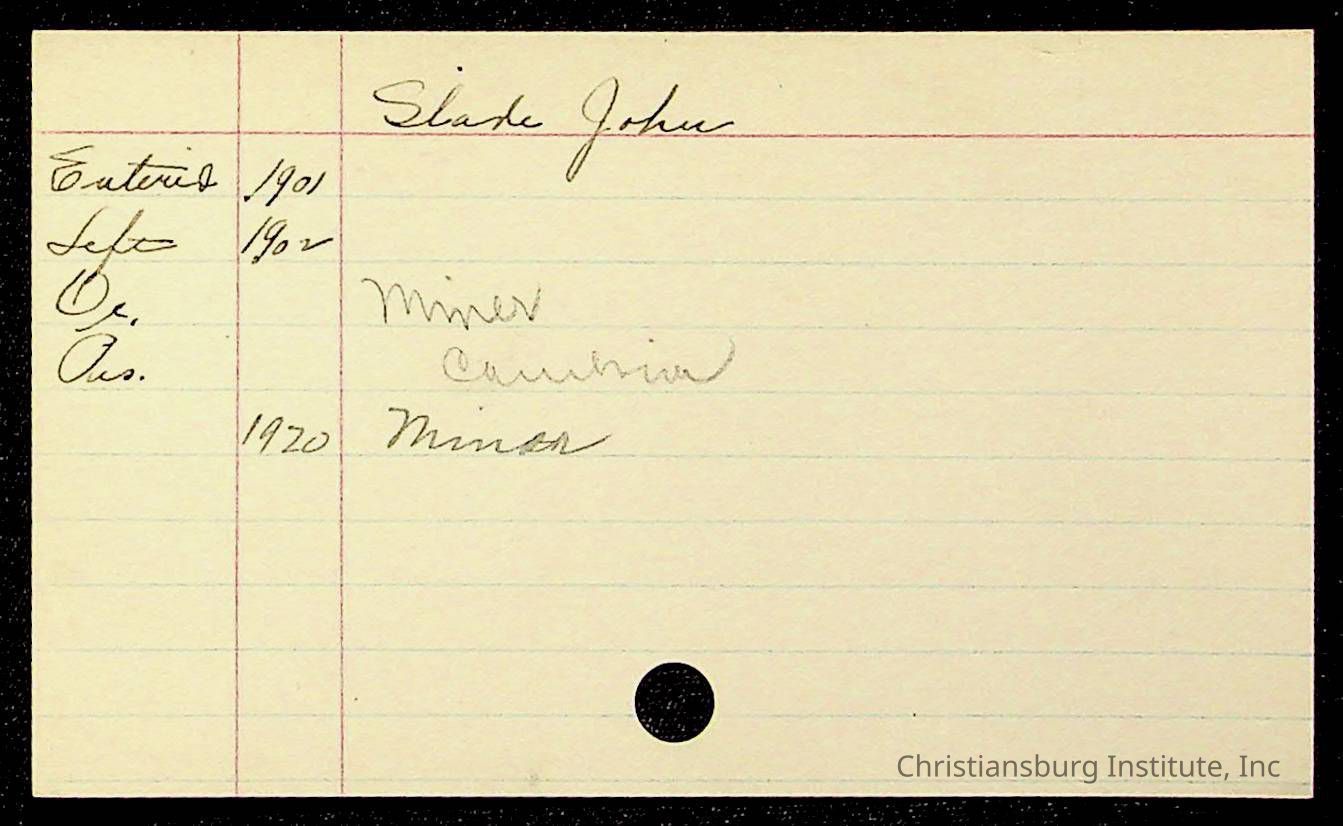 Slade John
Entered 1901
Left 1902
Oc. Miner
Res. Cambria
1920 Minor
Christiansburg Institute, Inc